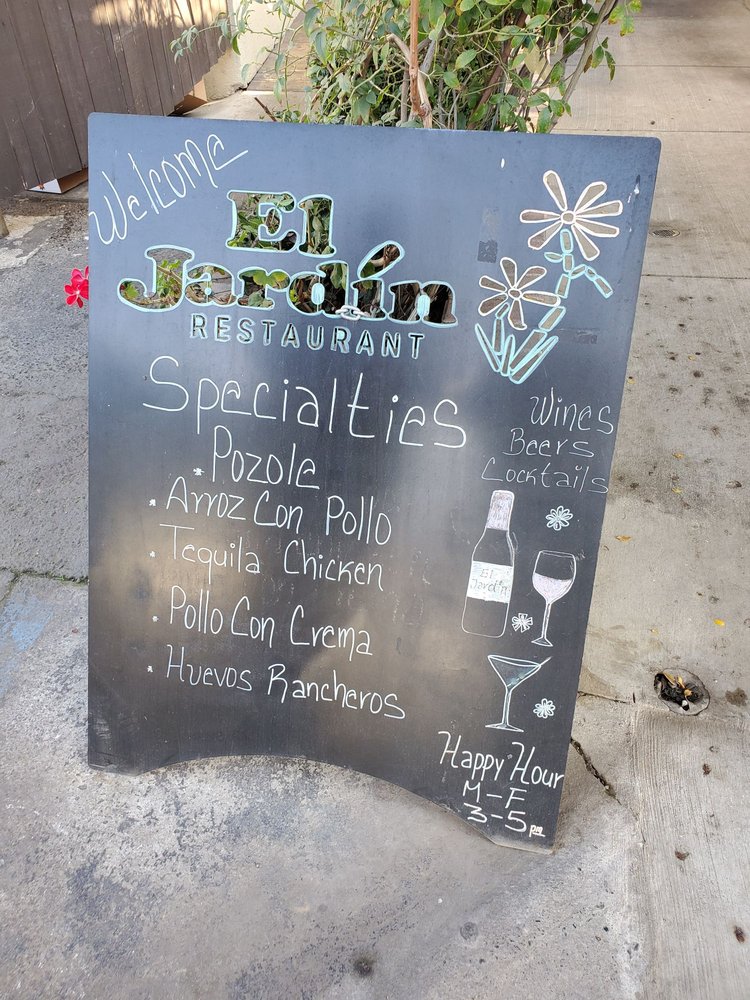 Welcome
El
Jardín
RESTAURANT
Specialties
. Pozole
. Arroz Con Pollo
. Tequila Chicken
. Pollo Con Crema
. Huevos Rancheros
Wines
Beers
Cocktails
El
Jardín
Happy Hour
M-F
3-5pm